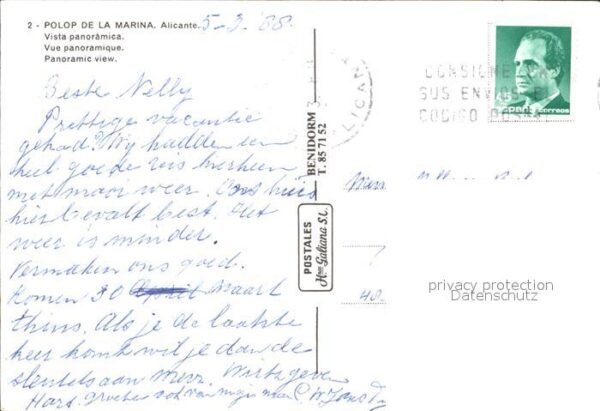 2 - POLOP DE LA MARINA. Alicante.
Vista panorámica.
Vue panoramique.
Panoramic view.
5-3 '88
Beste Nelly
Prettige vacantie
gehad? Wy hadden een
heel goede reis hierheen
met mooi weer. Ons huis
hier bevalt best. Het
weer is minder.
Vermaken ons goed.
Komen 30 Maart
thuis. Als je de laatste
keer komt wil je dan de
sleutels aan Mevr. geven
Hart. groeten ook van mijn man
BENIDORM
T. 85 71 52
POSTALES
Hnos Galiana S.L.
ALICANTE
CONSIGNE EN
SUS ENVIOS EL
CODIGO POSTAL
correos
privacy protection
Datenschutz